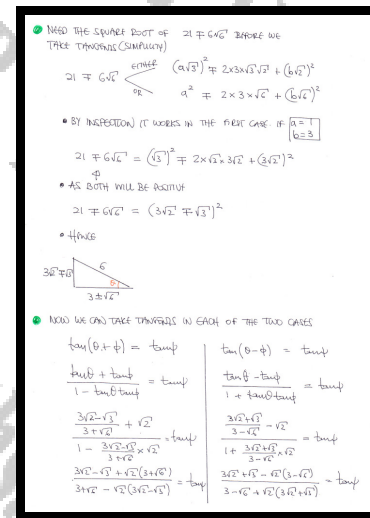 NEED THE SQUARE ROOT OF 21 ∓ 6√6 BEFORE WE
TAKE TANGENTS (SIMPLIFY)
21 ∓ 6√6 EITHER (a√3)² ∓ 2×3×√3√2 + (b√2)²
OR a² ∓ 2×3×√6 + (b√6)²
• BY INSPECTION IT WORKS IN THE FIRST CASE IF a = 1
b = 3
21 ∓ 6√6 = (√3)² ∓ 2×√3×3√2 + (3√2)²
• AS BOTH WILL BE POSITIVE
21 ∓ 6√6 = (3√2 ∓ √3)²
• HENCE
3√2 ∓ √3
6
θ
3 ± √6
NOW WE CAN TAKE TANGENTS IN EACH OF THE TWO CASES
tan(θ+ϕ) = tanψ
(tanθ + tanϕ)/(1 - tanθtanϕ) = tanψ
((3√2-√3)/(3+√6) + √2)/(1 - (3√2-√3)/(3+√6) × √2) = tanψ
(3√2-√3 + √2(3+√6))/(3+√6 - √2(3√2-√3)) = tanψ
tan(θ-ϕ) = tanψ
(tanθ - tanϕ)/(1 + tanθtanϕ) = tanψ
((3√2+√3)/(3-√6) - √2)/(1 + (3√2+√3)/(3-√6) × √2) = tanψ
(3√2+√3 - √2(3-√6))/(3-√6 + √2(3√2+√3)) = tanψ